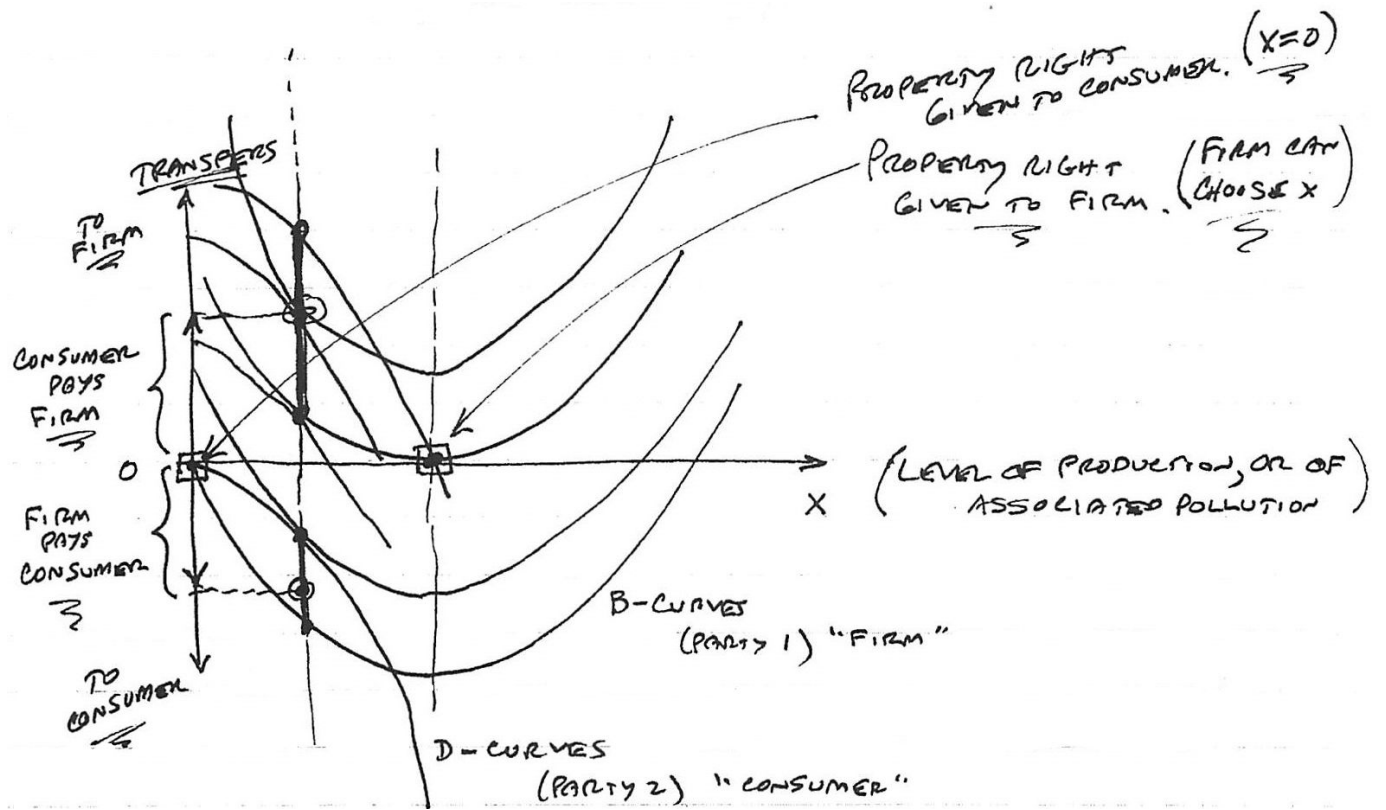 PROPERTY RIGHT (X=0)
GIVEN TO CONSUMER.
PROPERTY RIGHT (FIRM CAN
GIVEN TO FIRM. CHOOSE X)
TRANSFERS
TO
FIRM
CONSUMER
PAYS
FIRM
O
FIRM
PAYS
CONSUMER
TO
CONSUMER
X
(LEVEL OF PRODUCTION, OR OF
ASSOCIATED POLLUTION)
B-CURVES
(PARTY 1) "FIRM"
D-CURVES
(PARTY 2) "CONSUMER"